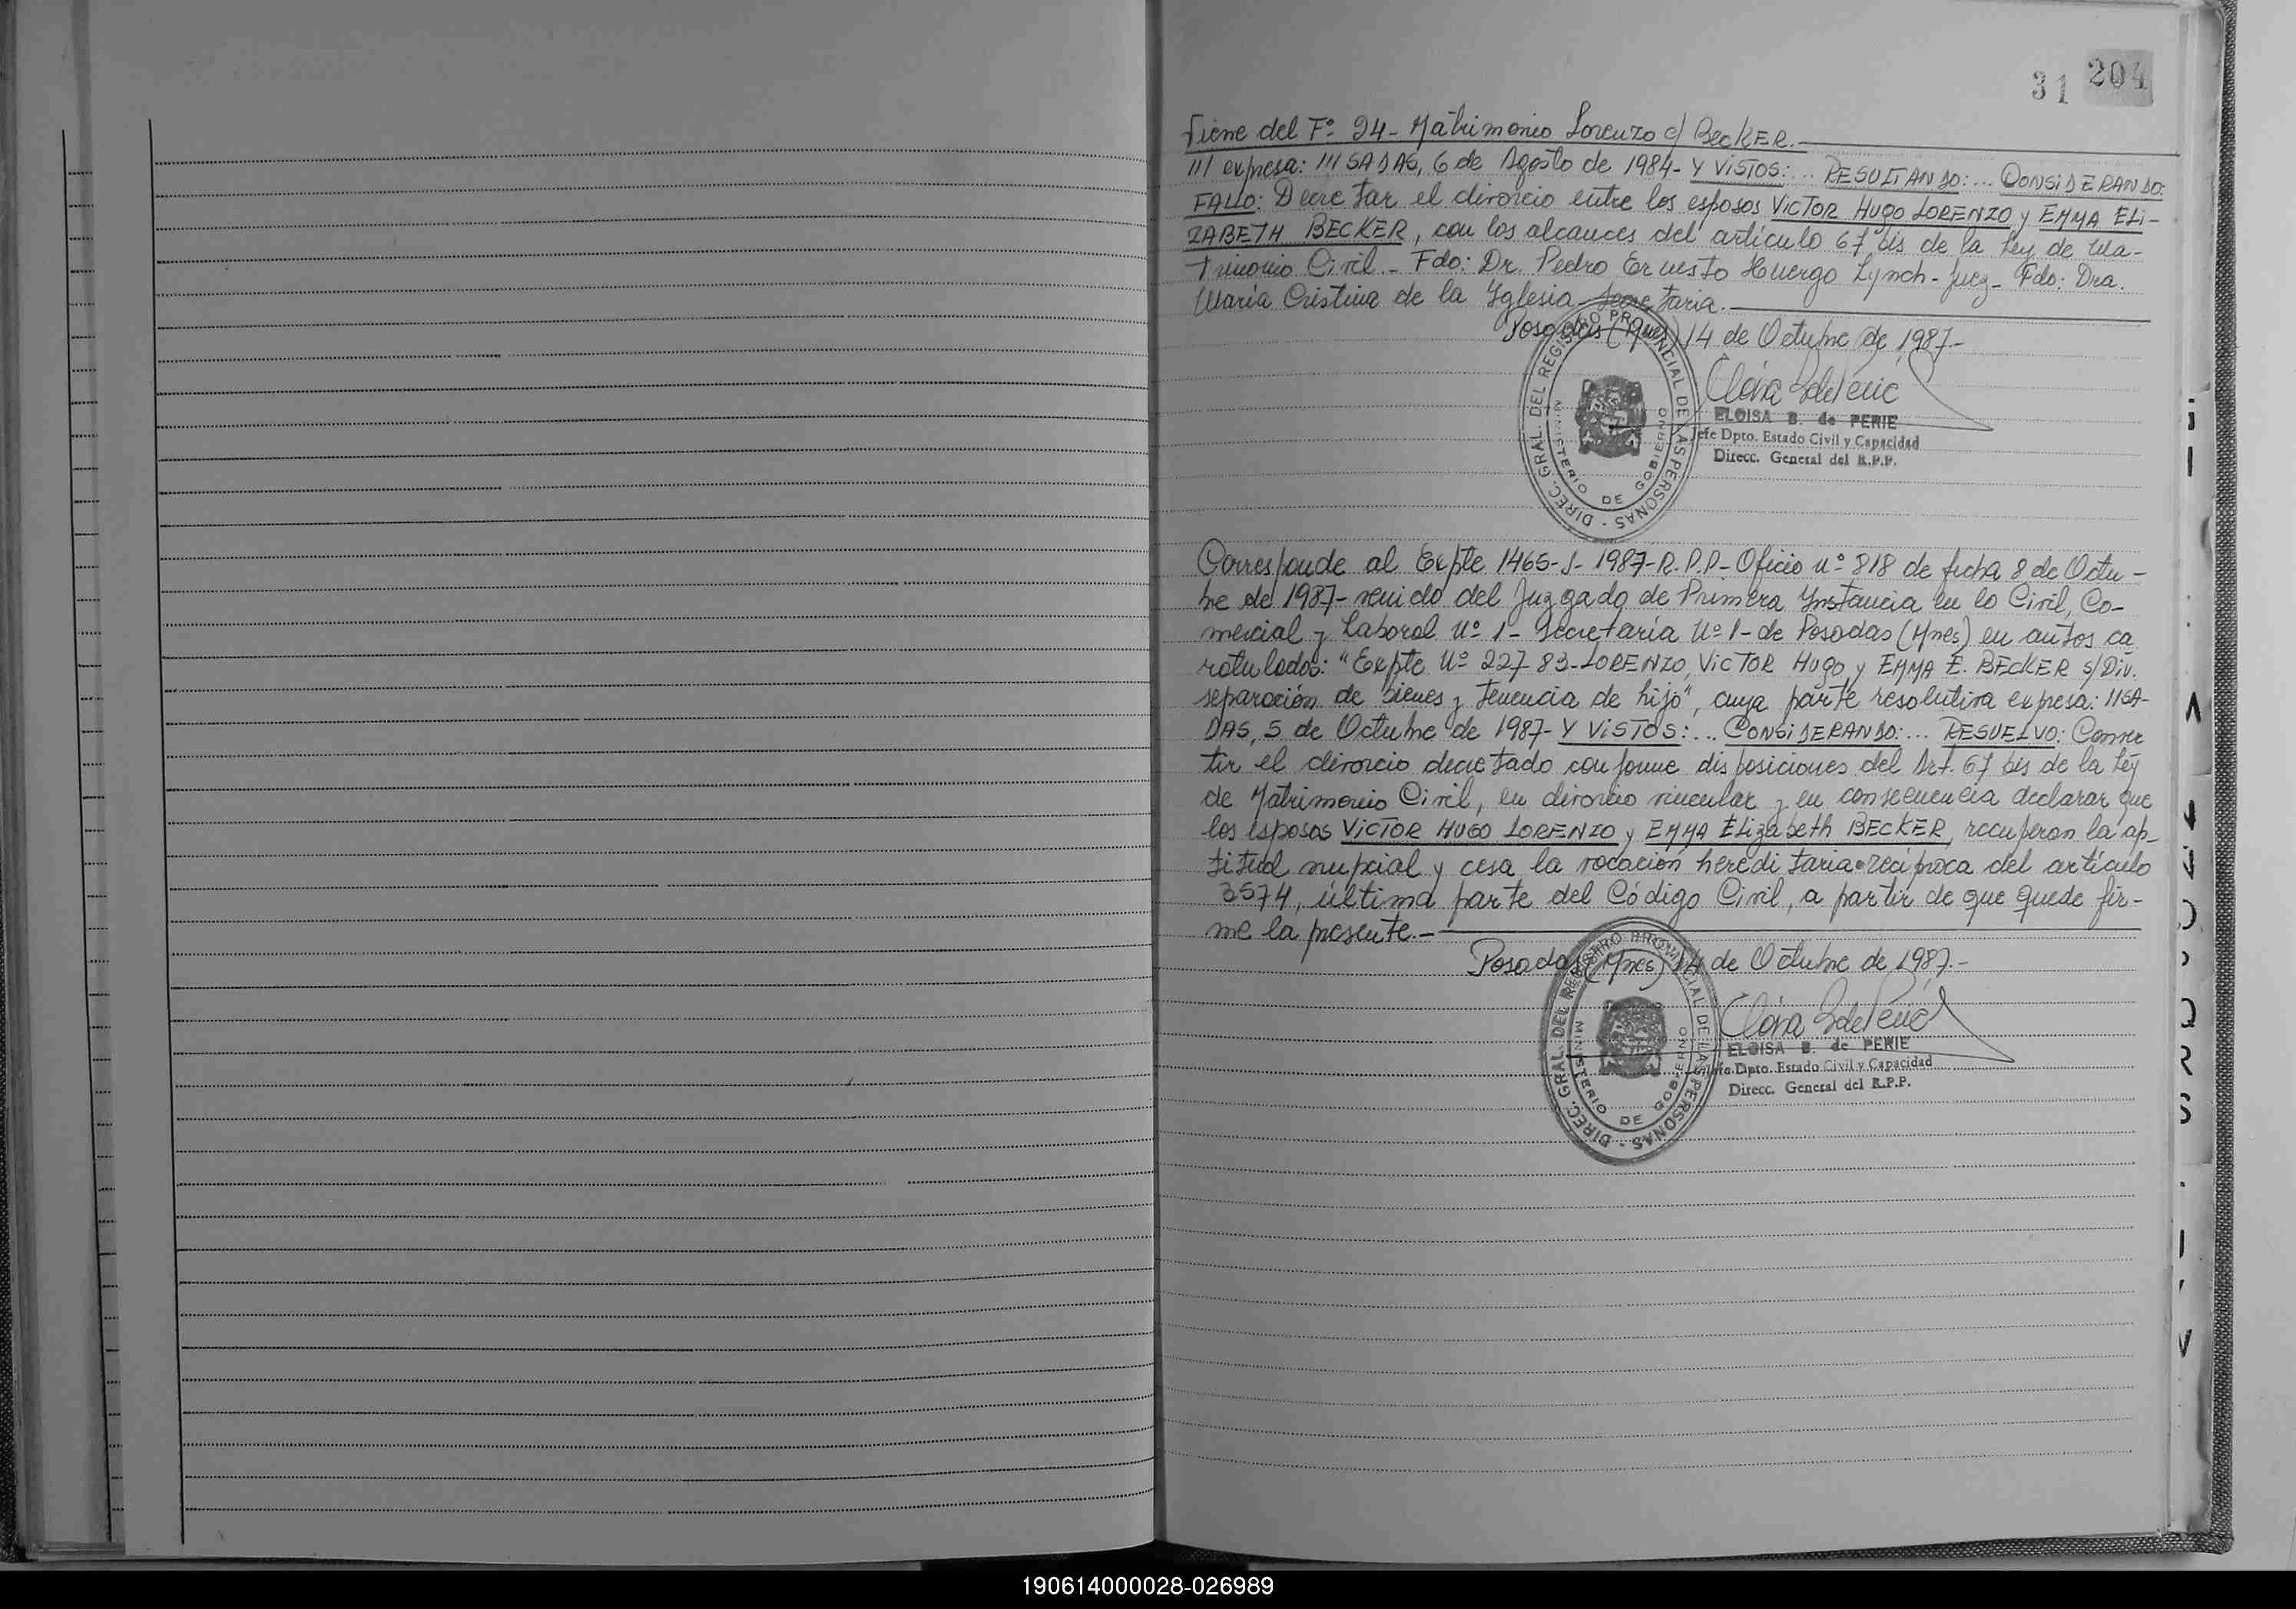 31 204
Viene del Fº 24- Matrimonio Lorenzo c/ BECKER.-
/// expresa: /// SADAS, 6 de Agosto de 1984- Y VISTOS:... RESULTANDO:... CONSIDERANDO:
FALLO: Decretar el divorcio entre los esposos VICTOR HUGO LORENZO y EMMA ELI-
ZABETH BECKER, con los alcances del artículo 67 bis de la Ley de Ma-
trimonio Civil.- Fdo: Dr. Pedro Ernesto Huergo Lynch- Juez- Fdo: Dra.
María Cristina de la Yglesia- Secretaria.-
Posadas (Mnes) 14 de Octubre de 1987.-
DIREC. GRAL. DEL REGISTRO PROVINCIAL DE LAS PERSONAS -
MINISTERIO DE GOBIERNO
ELOISA B. de PERIE
Jefe Dpto. Estado Civil y Capacidad
Direcc. General del R.P.P.
Corresponde al Expte 1465-J- 1987-R.P.P- Oficio nº 818 de fecha 8 de Octu-
bre de 1987- venido del Juzgado de Primera Ynstancia en lo Civil, Co-
mercial y Laboral Nº 1- Secretaría Nº 1- de Posadas (Mnes) en autos ca
rotulados: "Expte Nº 227-83- LORENZO, VICTOR HUGO y EMMA E. BECKER s/Div.
separación de bienes y tenencia de hijo", cuya parte resolutiva expresa: //SA-
DAS, 5 de Octubre de 1987- Y VISTOS:... CONSIDERANDO:... RESUELVO: Conver
tir el divorcio decretado conforme disposiciones del Art. 67 bis de la Ley
de Matrimonio Civil, en divorcio vincular y en consecuencia declarar que
los esposos VICTOR HUGO LORENZO y EMMA Elizabeth BECKER, recuperan la ap-
titud nupcial y cesa la vocación hereditaria recíproca del artículo
3574, última parte del Código Civil, a partir de que quede fir-
me la presente.-
Posadas (Mnes) 14 de Octubre de 1987.-
DIREC. GRAL. DEL REGISTRO PROVINCIAL DE LAS PERSONAS -
MINISTERIO DE GOBIERNO
ELOISA B. de PERIE
Jefe Dpto. Estado Civil y Capacidad
Direcc. General del R.P.P.
190614000028-026989